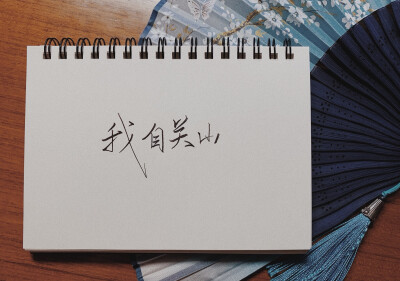 我自关山